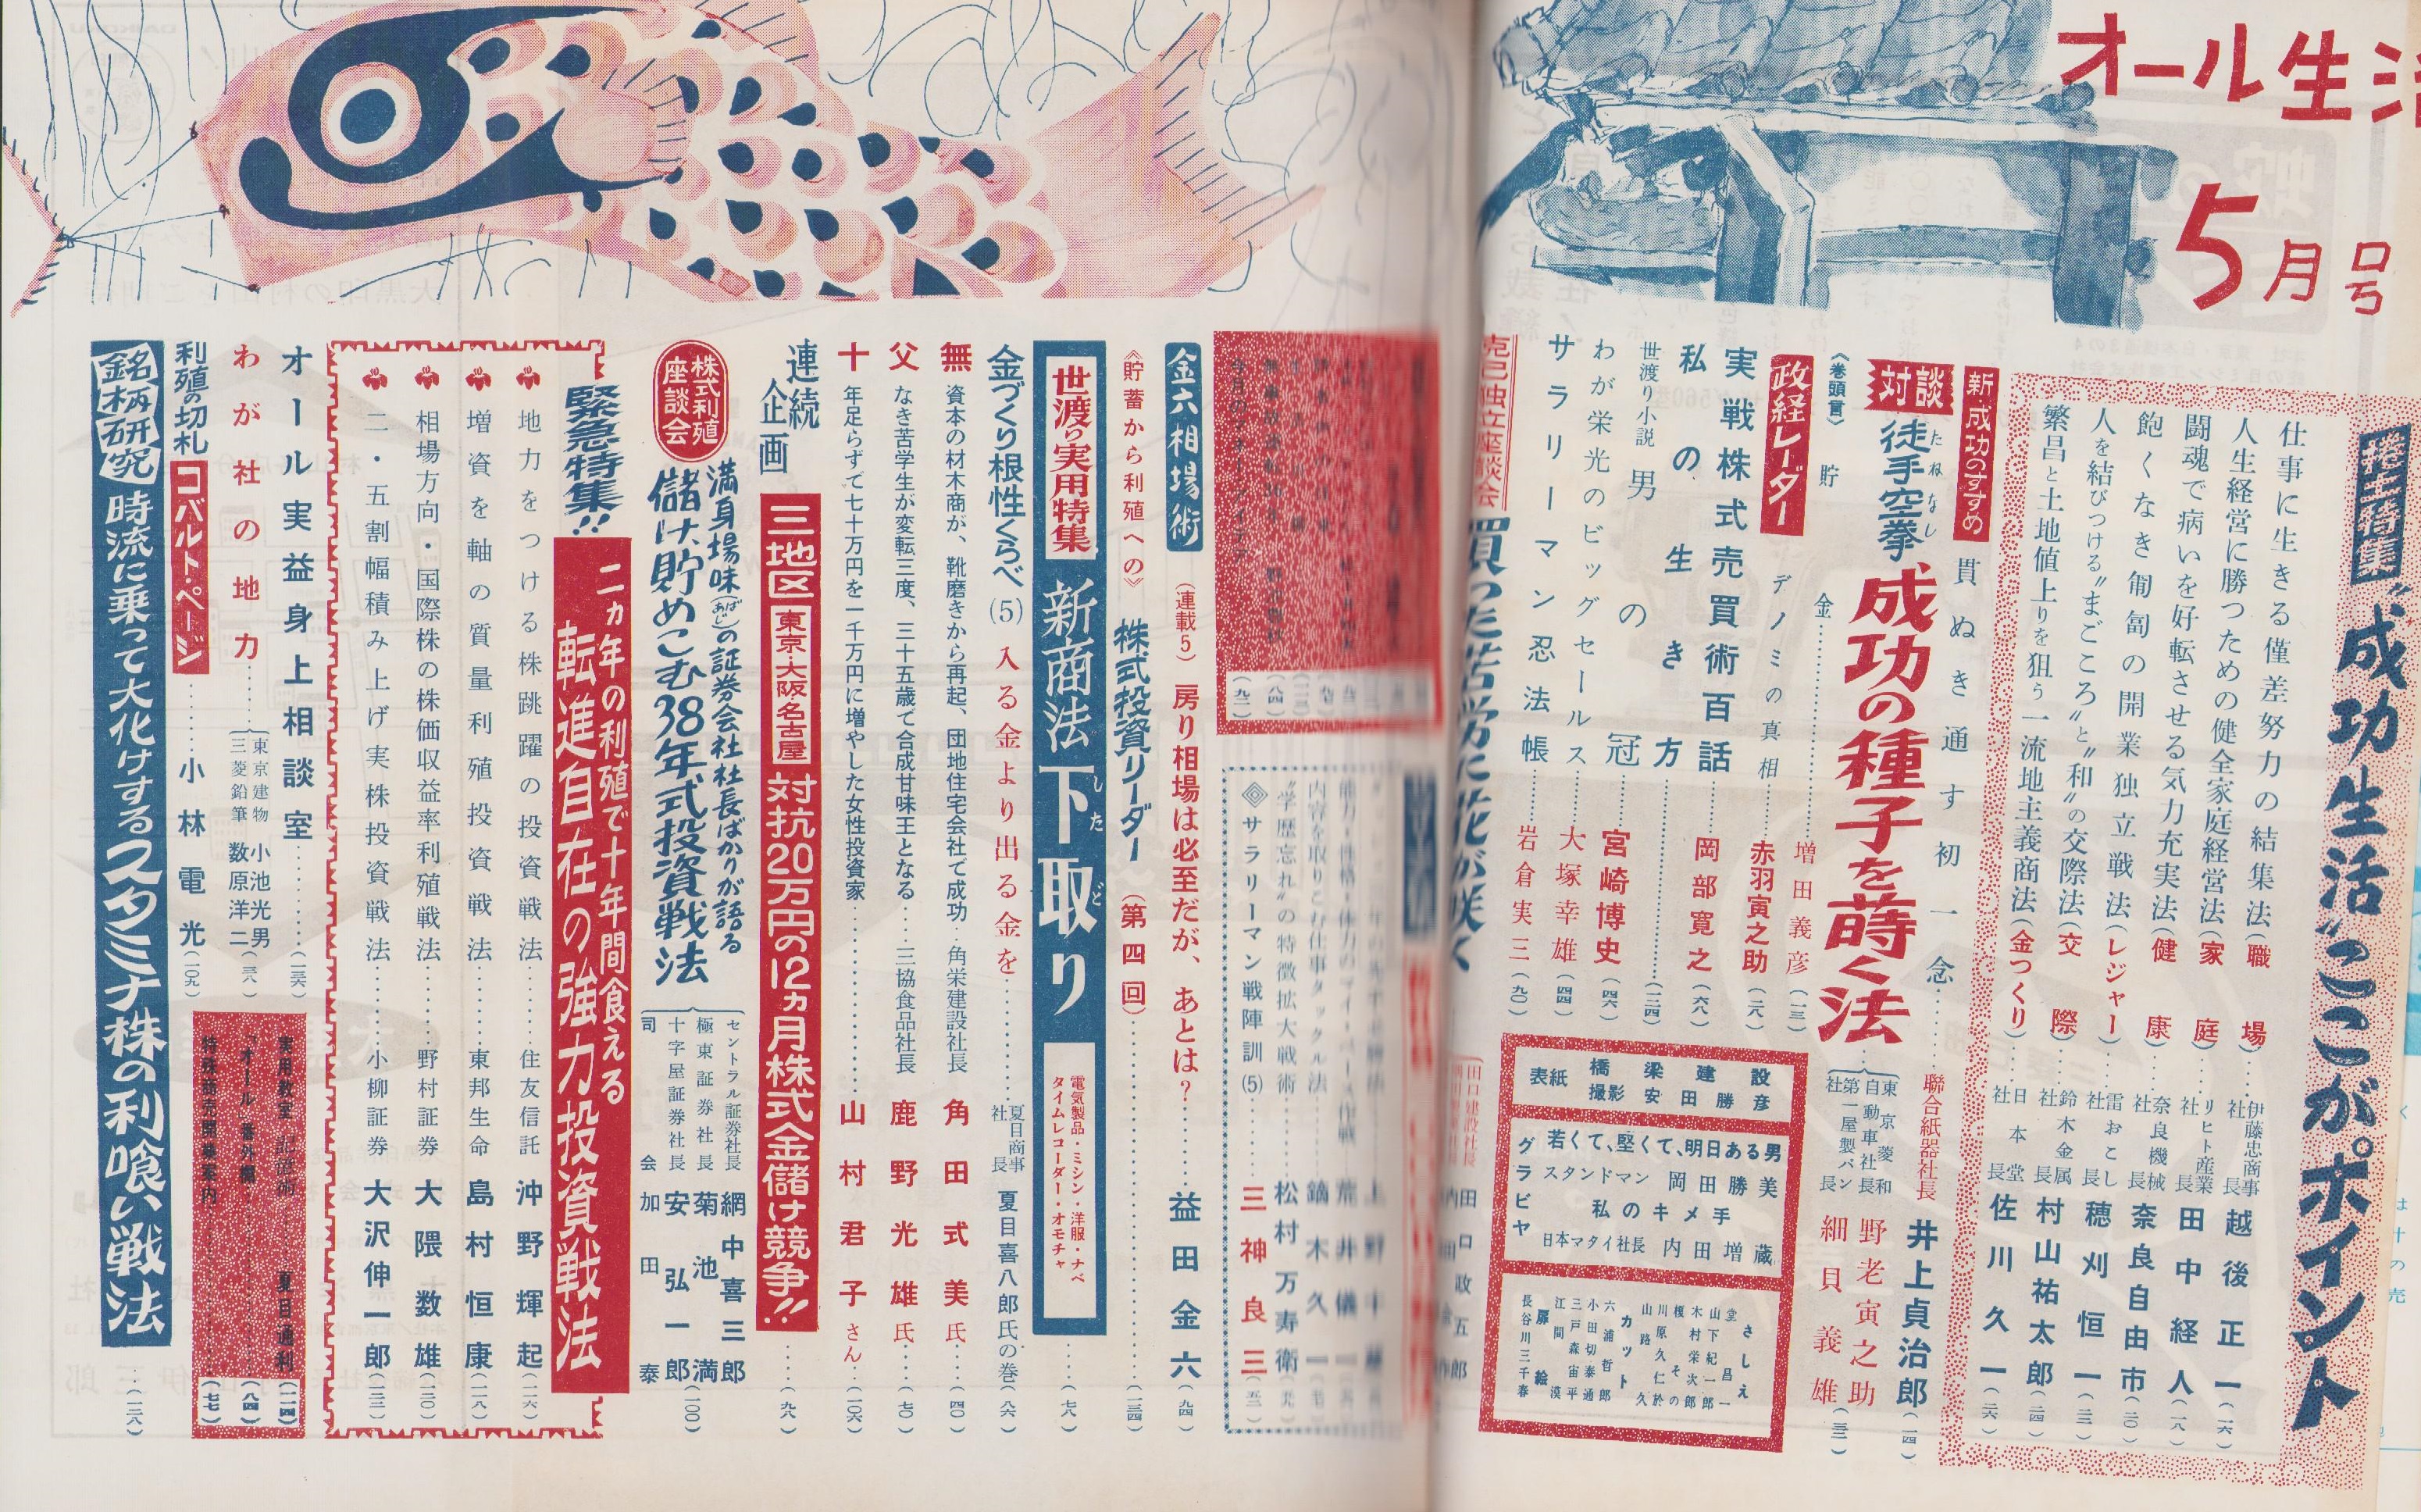 オール生活
5月号
捲土特集
"成功生活"ここがポイント
仕事に生きる僅差努力の結集法(職場)…伊藤忠商事社長 越後正一(一六)
人生経営に勝つための健全家庭経営法(家庭)…リヒト産業社長 田中経人(一八)
闘魂で病いを好転させる気力充実法(健康)…奈良機械社長 奈良自由市(二〇)
飽くなき匍匐の開業独立戦法(レジャー)…雷おこし社長 穂刈恒一(二二)
人を結びつける"まごころ"と"和"の交際法(交際)…鈴木金属社長 村山祐太郎(二四)
繁昌と土地値上りを狙う一流地主義商法(金つくり)…日本堂社長 佐川久一(二六)
新・成功のすすめ
貫ぬき通す初一念……聯合紙器社長 井上貞治郎(一四)
対談
徒手空拳、成功の種子を蒔く法…東京菱和自動車社長 野老寅之助
たねなし
第一屋製パン社長 細貝義雄(三二)
《巻頭言》
貯金……増田義彦(一三)
政経レーダー
デノミの真相……赤羽寅之助(二八)
実戦株式売買術百話……岡部寛之(六八)
私の生き方……(一二四)
世渡り小説 男の冠……宮崎博史(四六)
わが栄光のビッグセールス……大塚幸雄(四四)
サラリーマン忍法帳……岩倉実三(九〇)
克己独立座談会
買った苦労に花が咲く
田口建設社長 田口政五郎
表紙 橋梁建設
撮影 安田勝彦
グラビヤ
若くて、堅くて、明日ある男
スタンドマン 岡田勝美
私のキメ手
日本マタイ社長 内田増蔵
さしえ
堂昌一
山下紀一郎
木村栄次郎
榎その
川原久仁於
山路久
カット
六浦哲郎
小田切泰通
三戸森宙平
江間漠
扉絵
長谷川三千春
"学歴忘れ"の特徴拡大戦術……松村万寿衛
◎サラリーマン戦陣訓(5)……三神良三
鏑木久一
金六相場術
(連載5)
房り相場は必至だが、あとは?……益田金六(九四)
《貯蓄から利殖への》
株式投資リーダー(第四回)……(一三四)
世渡り実用特集
新商法下取り
したど
電気製品・ミシン・洋服・ナベ
タイムレコーダー・オモチャ
……(七八)
金づくり根性くらべ(5)
入る金より出る金を……夏目商事社長 夏目喜八郎氏の巻(八六)
無資本の材木商が、靴磨きから再起、団地住宅会社で成功…角栄建設社長 角田式美氏……(四〇)
父なき苦学生が変転三度、三十五歳で合成甘味王となる…三協食品社長 鹿野光雄氏……(七〇)
十年足らずで七十万円を一千万円に増やした女性投資家……山村君子さん……(一〇六)
連続企画
三地区
東京・大阪・名古屋
対抗20万円の12ヵ月株式金儲け競争!!
……(九八)
株式利殖座談会
満身場味(ばあじ)の証券会社社長ばかりが語る
儲け貯めこむ38年式投資戦法
セントラル証券社長 網中喜三郎
極東証券社長 菊池満
十字屋証券社長 安弘一郎
司会 加田泰
(一〇〇)
緊急特集!!
二ヵ年の利殖で十年間食える
転進自在の強力投資戦法
地力をつける株跳躍の投資戦法……住友信託 沖野輝起(一二六)
増資を軸の質量利殖投資戦法……東邦生命 島村恒康(一二八)
相場方向・国際株の株価収益率利殖戦法……野村証券 大隈数雄(一三〇)
二・五割幅積み上げ実株投資戦法……小柳証券 大沢伸一郎(一三二)
オール実益身上相談室……(一三六)
わが社の地力……東京建物 小池光男
三菱鉛筆 数原洋二(三八)
利殖の切札
コバルト・ページ……小林電光(一〇九)
実用教室 記憶術……夏目通利(一二四)
「オール」番外欄……(八四)
特殊商売開業案内……(七七)
銘柄研究
時流に乗って大化けするスタミナ株の利喰い戦法
……(一三八)